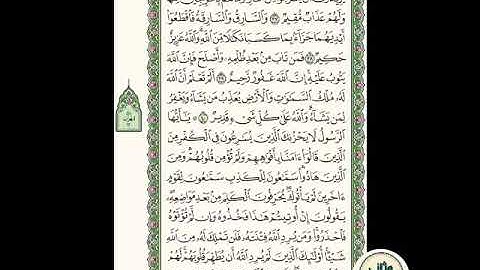 وَلَهُمْ عَذَابٌ مُّقِيمٌ ﴿٣٧﴾ وَالسَّارِقُ وَالسَّارِقَةُ فَاقْطَعُوا
أَيْدِيَهُمَا جَزَاءً بِمَا كَسَبَا نَكَالًا مِّنَ اللَّهِ وَاللَّهُ عَزِيزٌ
حَكِيمٌ ﴿٣٨﴾ فَمَن تَابَ مِن بَعْدِ ظُلْمِهِ وَأَصْلَحَ فَإِنَّ اللَّهَ
يَتُوبُ عَلَيْهِ إِنَّ اللَّهَ غَفُورٌ رَّحِيمٌ ﴿٣٩﴾ أَلَمْ تَعْلَمْ أَنَّ اللَّهَ
لَهُ مُلْكُ السَّمَوَتِ وَالْأَرْضِ يُعَذِّبُ مَن يَشَاءُ وَيَغْفِرُ
لِمَن يَشَاءُ وَاللَّهُ عَلَى كُلِّ شَيْءٍ قَدِيرٌ ﴿٤٠﴾ يَأَيُّهَا
الرَّسُولُ لَا يَحْزُنكَ الَّذِينَ يُسَرِعُونَ فِي الْكُفْرِ مِنَ
الَّذِينَ قَالُوا ءَامَنَّا بِأَفْوَهِهِمْ وَلَمْ تُؤْمِن قُلُوبُهُمْ وَمِنَ
الَّذِينَ هَادُوا سَمَّعُونَ لِلْكَذِبِ سَمَّعُونَ لِقَوْمٍ
ءَاخَرِينَ لَمْ يَأْتُوكَ يُحَرِّفُونَ الْكَلِمَ مِن بَعْدِ مَوَاضِعِهِ
يَقُولُونَ إِنْ أُوتِيتُمْ هَذَا فَخُذُوهُ وَإِن لَّمْ تُؤْتَوْهُ
فَاحْذَرُوا وَمَن يُرِدِ اللَّهُ فِتْنَتَهُ فَلَن تَمْلِكَ لَهُ مِنَ اللَّهِ
شَيْئًا أُولَئِكَ الَّذِينَ لَمْ يُرِدِ اللَّهُ أَن يُطَهِّرَ قُلُوبَهُمْ لَهُمْ